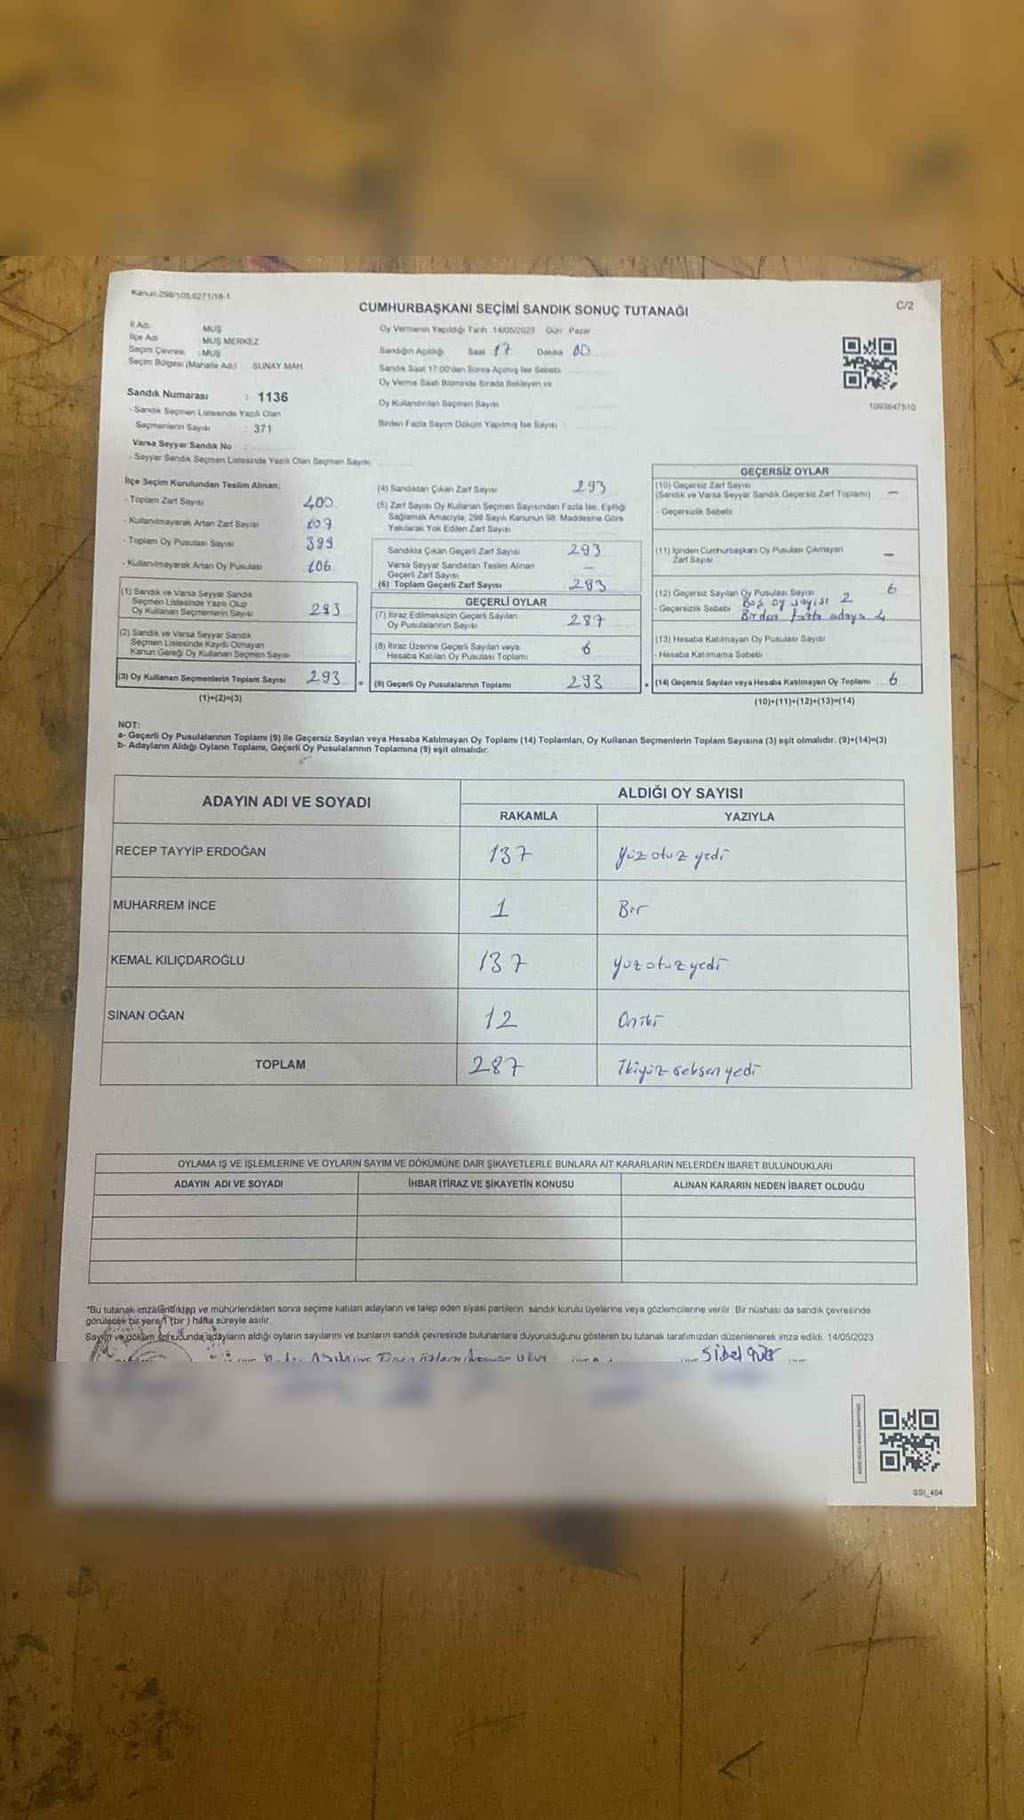 Kanun:298/105,6271/18-1
CUMHURBAŞKANI SEÇİMİ SANDIK SONUÇ TUTANAĞI
C/2
İl Adı MUŞ
İlçe Adı MUŞ MERKEZ
Seçim Çevresi : MUŞ
Seçim Bölgesi (Mahalle Adı) SUNAY MAH
Oy Vermenin Yapıldığı Tarih 14/05/2023 Gün Pazar
Sandığın Açıldığı Saat 17 Dakika 00
Sandık Saat 17:00'den Sonra Açılmış İse Sebebi
Oy Verme Saati Bitiminde Sırada Bekleyen ve
Oy Kullandırılan Seçmen Sayısı
Birden Fazla Sayım Döküm Yapılmış İse Sayısı
1093647510
Sandık Numarası : 1136
- Sandık Seçmen Listesinde Yazılı Olan
Seçmenlerin Sayısı : 371
Varsa Seyyar Sandık No
- Seyyar Sandık Seçmen Listesinde Yazılı Olan Seçmen Sayısı
İlçe Seçim Kurulundan Teslim Alınan:
- Toplam Zarf Sayısı 400
- Kullanılmayarak Artan Zarf Sayısı 107
- Toplam Oy Pusulası Sayısı 399
- Kullanılmayarak Artan Oy Pusulası 106
(1) Sandık ve Varsa Seyyar Sandık
Seçmen Listesinde Yazılı Olup
Oy Kullanan Seçmenlerin Sayısı 293
(2) Sandık ve Varsa Seyyar Sandık
Seçmen Listesinde Kayıtlı Olmayan
Kanun Gereği Oy Kullanan Seçmen Sayısı
(3) Oy Kullanan Seçmenlerin Toplam Sayısı 293
(1)+(2)=(3)
(4) Sandıktan Çıkan Zarf Sayısı 293
(5) Zarf Sayısı Oy Kullanan Seçmen Sayısından Fazla İse, Eşitliği
Sağlamak Amacıyla, 298 Sayılı Kanunun 98. Maddesine Göre
Yakılarak Yok Edilen Zarf Sayısı
Sandıkta Çıkan Geçerli Zarf Sayısı 293
Varsa Seyyar Sandıktan Teslim Alınan
Geçerli Zarf Sayısı —
(6) Toplam Geçerli Zarf Sayısı 293
GEÇERLİ OYLAR
(7) İtiraz Edilmeksizin Geçerli Sayılan
Oy Pusulalarının Sayısı 287
(8) İtiraz Üzerine Geçerli Sayılan veya
Hesaba Katılan Oy Pusulası Toplamı 6
(9) Geçerli Oy Pusulalarının Toplamı 293
GEÇERSİZ OYLAR
(10) Geçersiz Zarf Sayısı
(Sandık ve Varsa Seyyar Sandık Geçersiz Zarf Toplamı) —
- Geçersizlik Sebebi
(11) İçinden Cumhurbaşkanı Oy Pusulası Çıkmayan
Zarf Sayısı —
(12) Geçersiz Sayılan Oy Pusulası Sayısı 6
Geçersizlik Sebebi Boş oy sayısı 2
Birden fazla adaya 4
(13) Hesaba Katılmayan Oy Pusulası Sayısı
- Hesaba Katılmama Sebebi
(14) Geçersiz Sayılan veya Hesaba Katılmayan Oy Toplamı 6
(10)+(11)+(12)+(13)=(14)
NOT:
a- Geçerli Oy Pusulalarının Toplamı (9) ile Geçersiz Sayılan veya Hesaba Katılmayan Oy Toplamı (14) Toplamları, Oy Kullanan Seçmenlerin Toplam Sayısına (3) eşit olmalıdır. (9)+(14)=(3)
b- Adayların Aldığı Oyların Toplamı, Geçerli Oy Pusulalarının Toplamına (9) eşit olmalıdır.
ADAYIN ADI VE SOYADI
ALDIĞI OY SAYISI
RAKAMLA YAZIYLA
RECEP TAYYİP ERDOĞAN 137 Yüz otuz yedi
MUHARREM İNCE 1 Bir
KEMAL KILIÇDAROĞLU 137 Yüz otuz yedi
SİNAN OĞAN 12 On iki
TOPLAM 287 İkiyüz seksen yedi
OYLAMA İŞ VE İŞLEMLERİNE VE OYLARIN SAYIM VE DÖKÜMÜNE DAİR ŞİKAYETLERLE BUNLARA AİT KARARLARIN NELERDEN İBARET BULUNDUKLARI
ADAYIN ADI VE SOYADI İHBAR İTİRAZ VE ŞİKAYETİN KONUSU ALINAN KARARIN NEDEN İBARET OLDUĞU
*Bu tutanak imzalandıktan ve mühürlendikten sonra seçime katılan adayların ve talep eden siyasi partilerin sandık kurulu üyelerine veya gözlemcilerine verilir. Bir nüshası da sandık çevresinde
görülecek bir yere 1 (bir) hafta süreyle asılır.
Sayım ve döküm sonucunda, adayların aldığı oyların sayılarını ve bunların sandık çevresinde bulunanlara duyurulduğunu gösteren bu tutanak tarafımızdan düzenlenerek imza edildi. 14/05/2023
Sibel
SSI_404